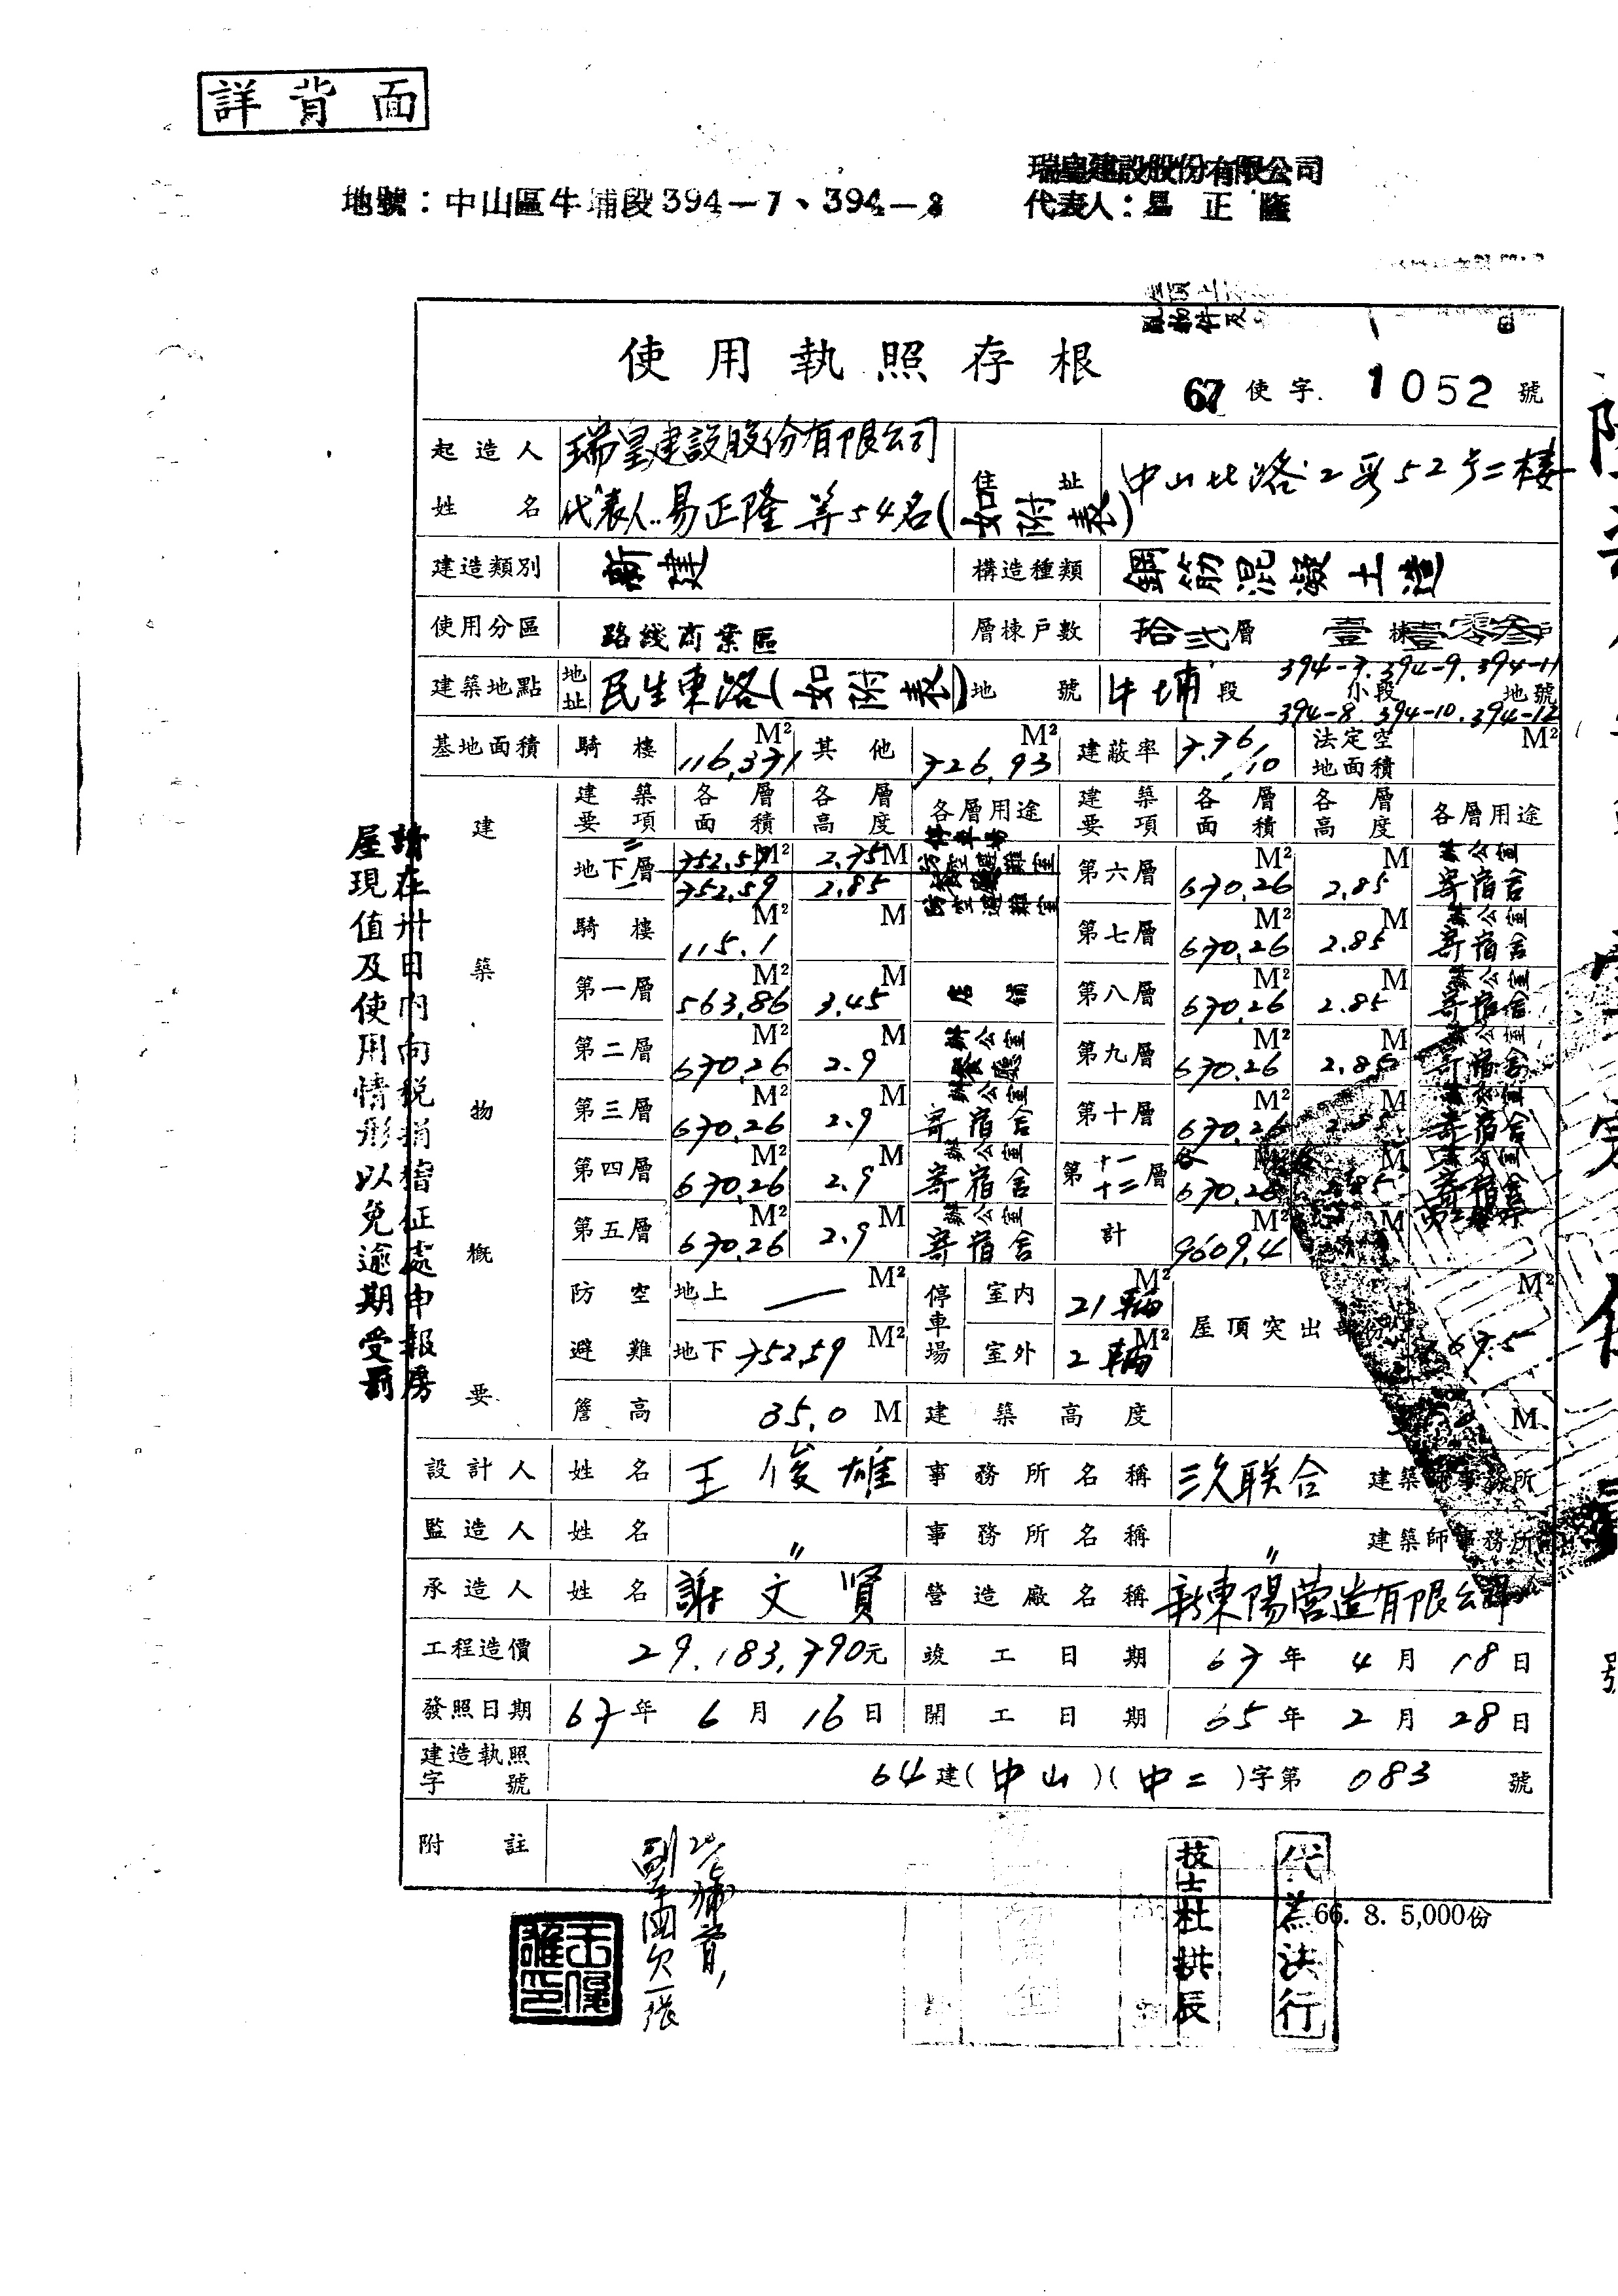 詳背面
瑞皇建設股份有限公司
地號：中山區牛埔段394-7、394-8 代表人：易正隆
使用執照存根
67使字 1052號
起造人姓名 瑞皇建設股份有限公司 代表人:易正隆等54名(如附表) 住址 中山北路2段52号二樓
建造類別 新建 構造種類 鋼筋混凝土造
使用分區 路綫商業區 層棟戶數 拾弍層 壹棟壹零叁戶
建築地點 地址 民生東路(如附表) 地號 牛埔段 小段 394-7.394-9.394-11 394-8.394-10.394-12 地號
基地面積 騎樓 116.371 M² 其他 726.93 M² 建蔽率 7.76/10 法定空地面積 M²
建築物概要
建築要項 各層面積 各層高度 各層用途 建築要項 各層面積 各層高度 各層用途
地下層 二 752.59 M² 2.75 M 停車場 防空避難室 第六層 670.26 M² 2.85 M 辦公室 寄宿舍
一 752.59 2.85 防空避難室
騎樓 115.1 M² M 第七層 670.26 M² 2.85 M 辦公室 寄宿舍
第一層 563.86 M² 3.45 M 店舖 第八層 670.26 M² 2.85 M 辦公室 寄宿舍
第二層 670.26 M² 2.9 M 辦公室 餐廳 第九層 670.26 M² 2.85 M 辦公室 寄宿舍
第三層 670.26 M² 2.9 M 辦公室 寄宿舍 第十層 670.26 M² 2.85 M 辦公室 寄宿舍
第四層 670.26 M² 2.9 M 辦公室 寄宿舍 第十一十二層 各 670.26 M² 2.85 M 辦公室 寄宿舍
第五層 670.26 M² 2.9 M 辦公室 寄宿舍 計 9609.4 M² M
防空避難 地上 — M² 停車場 室內 21輛 M² 屋頂突出部份 67.5 M²
地下 752.59 M² 室外 2輛 M²
簷高 35.0 M 建築高度 M
設計人 姓名 王俊雄 事務所名稱 三久联合 建築師事務所
監造人 姓名 〃 事務所名稱 〃 建築師事務所
承造人 姓名 謝文賢 營造廠名稱 新東陽营造有限公司
工程造價 29.183.790元 竣工日期 67年4月18日
發照日期 67年6月16日 開工日期 65年2月28日
建造執照字號 64建(中山)(中二)字第083號
附註
請在卅日內向稅捐稽征處申報房
屋現值及使用情形以免逾期受罰
副本圖欠一張
技士杜拱辰
代為決行
66. 8. 5,000份
王俊雄印